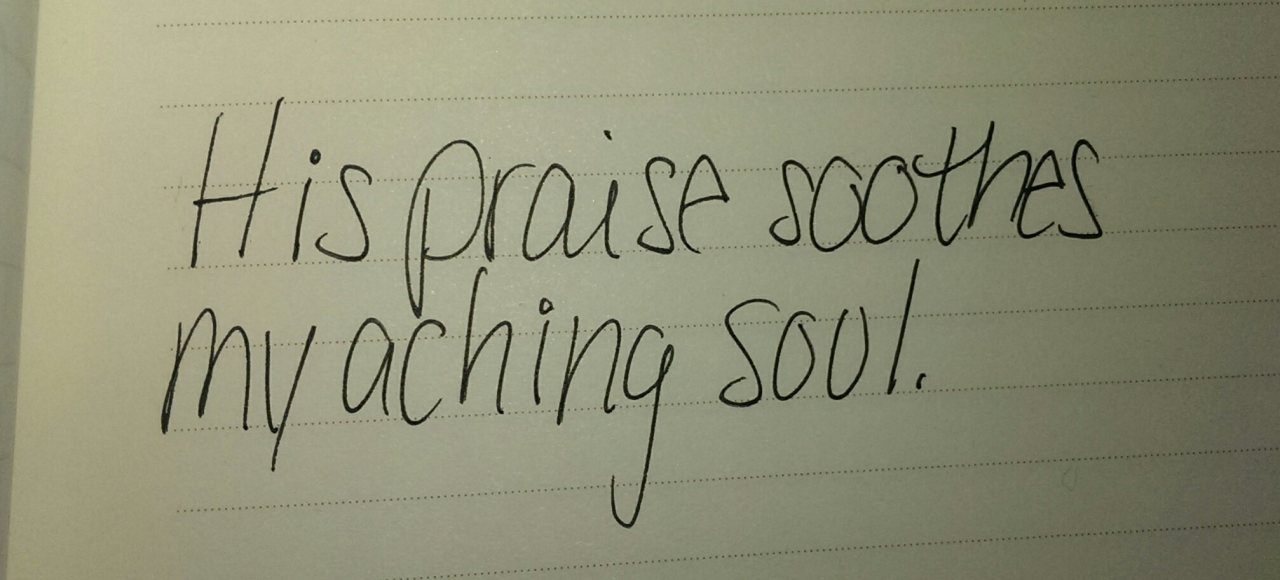 His praise soothes
my aching soul.